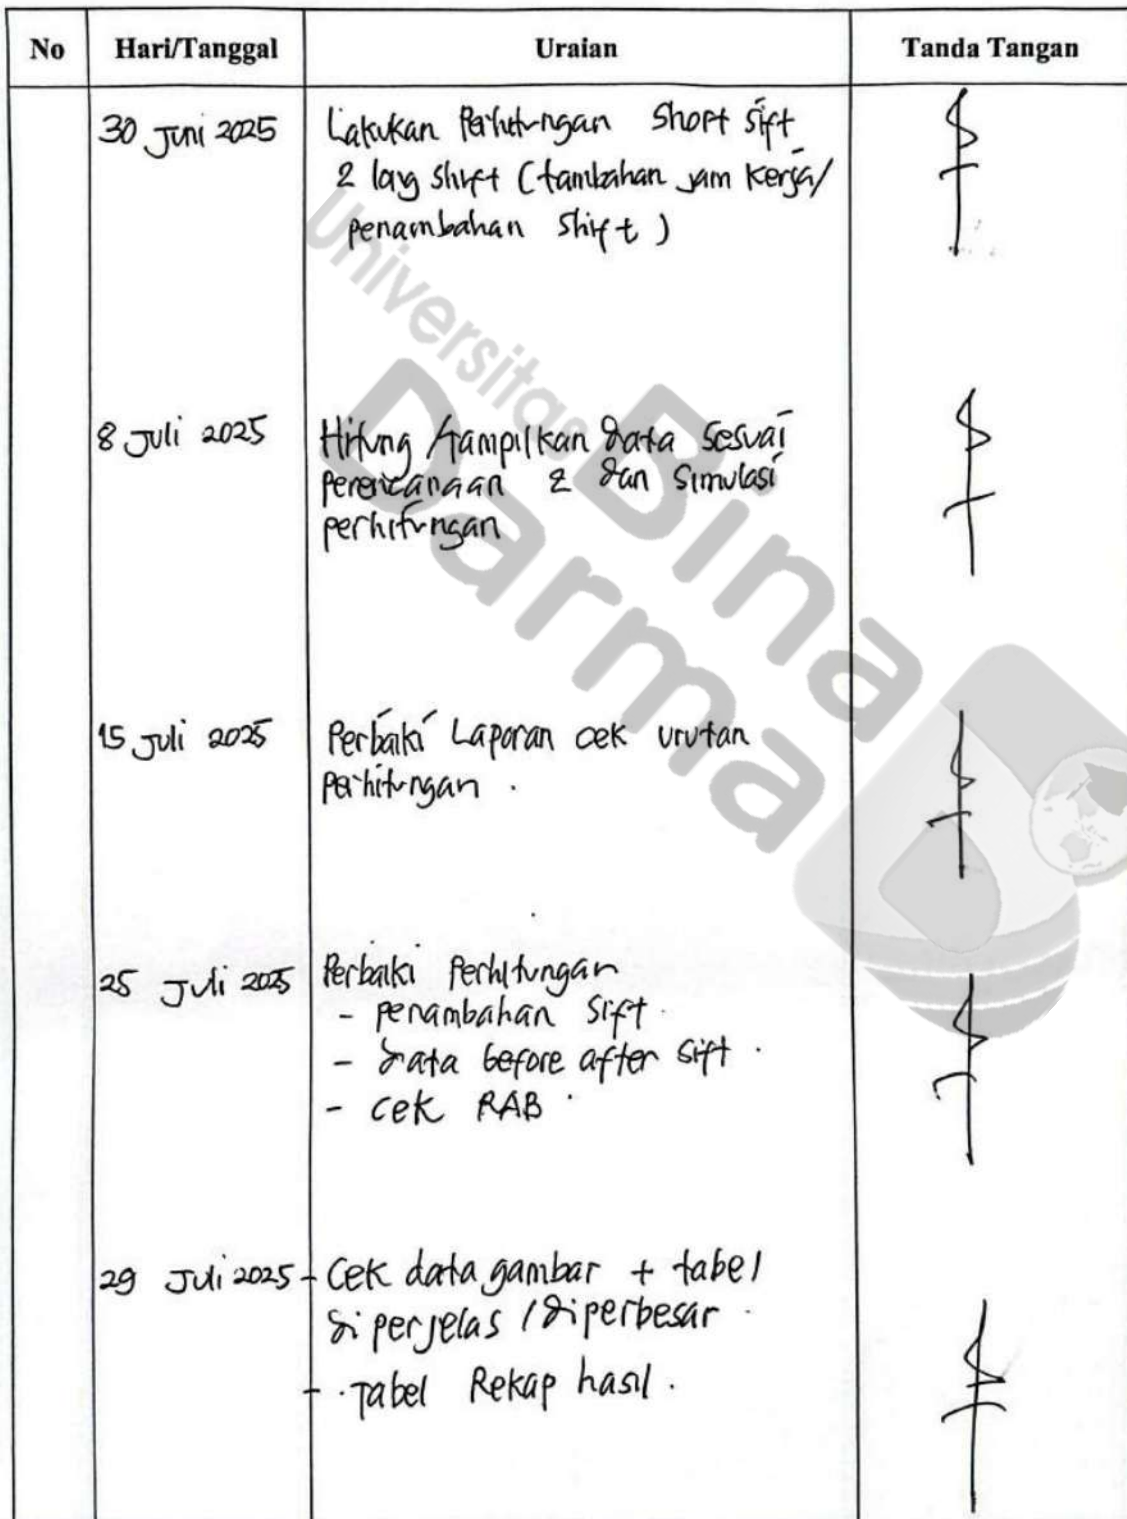 No Hari/Tanggal Uraian Tanda Tangan
30 Juni 2025 Lakukan Perhitungan Short sift
2 lay shift (tambahan jam kerja/
penambahan shift)
8 Juli 2025 Hitung /tampilkan data sesuai
perencanaan 2 dan simulasi
perhitungan
15 Juli 2025 Perbaiki Laporan cek urutan
perhitungan.
25 Juli 2025 Perbaiki Perhitungan
- penambahan sift.
- data before after sift.
- cek RAB.
29 Juli 2025 - Cek data gambar + tabel
di perjelas / diperbesar.
- Tabel Rekap hasil.
Universitas
Bina
Darma